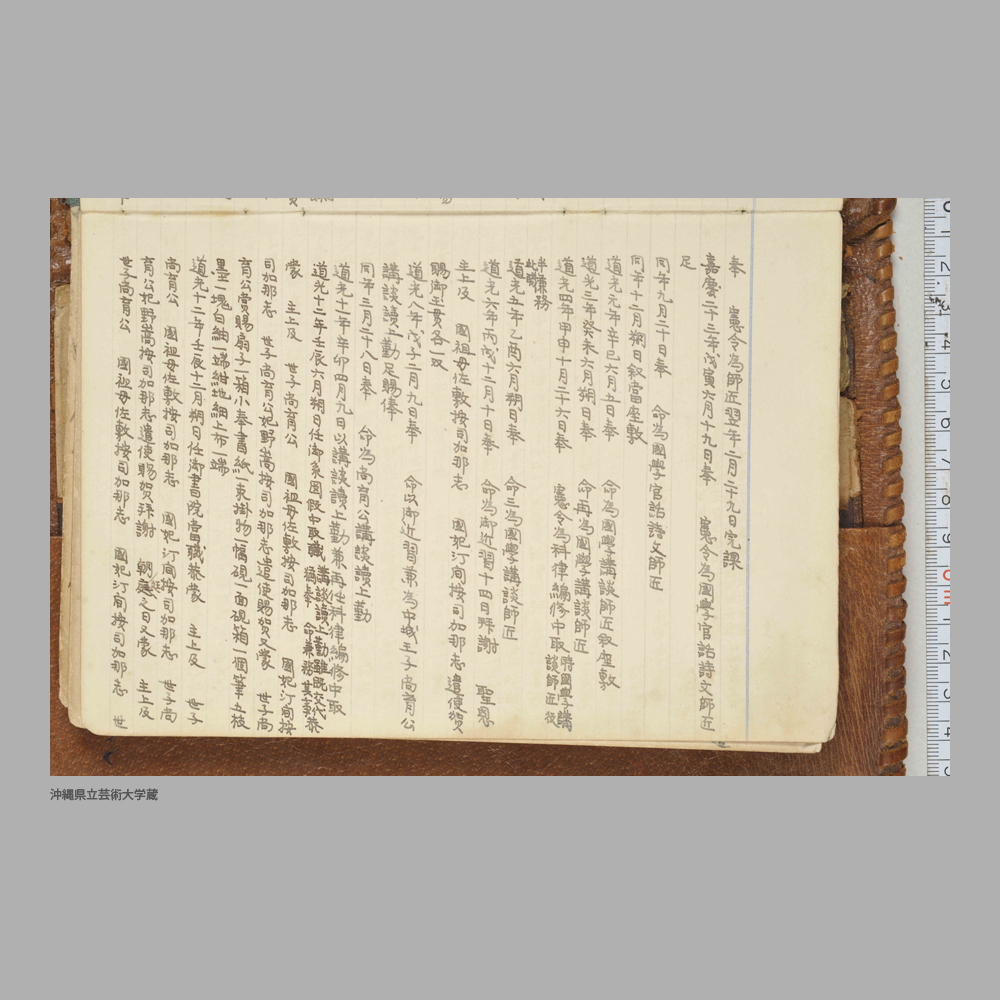 奉　憲令為師匠翌年二月二十九日完課
嘉慶二十三年戊寅六月十九日奉　憲令為國學官話詩文師匠
足
同年九月二十日奉　命為國學官話詩文師匠
同年十二月朔日叙當座敷
道光元年辛巳六月五日奉　命為國學講談師匠叙座敷
道光三年癸未六月朔日奉　命再為國學講談師匠
道光四年甲申十月二十六日奉　憲令為科律編修中取時國學講談師匠役
兼務
道光五年乙酉六月朔日奉　命三為國學講談師匠
道光六年丙戌十二月十日奉　命為御近習十四日拜謝　聖恩
主上及　國祖母佐敷按司加那志　國妃汀間按司加那志遣使賀
賜御玉貫各一双
道光八年戊子二月九日奉　命以御近習兼為中城王子尚育公
講談讀上勤足賜俸
同年三月二十八日奉　命為尚育公講談讀上勤
道光十一年辛卯四月九日以講談讀上勤兼再任科律編修中取
道光十二年壬辰六月朔日任御系圖假中取職講談讀上勤雖既交代猶奉命兼務其事恭
蒙　主上及　世子尚育公　國祖母佐敷按司加那志　國妃汀間按
司加那志　世子尚育公妃野嵩按司加那志遣使賜賀又蒙　世子尚
育公賞賜扇子一箱小奉書紙一束掛物一幅硯一面硯箱一個筆五枝
墨一塊白紬一端紺地細上布一端
道光十二年壬辰十二月朔日任御書院當職恭蒙　主上及　世子
尚育公　國祖母佐敷按司加那志　國妃汀間按司加那志　世子尚
育公妃野嵩按司加那志遣使賜賀拜謝　朝庭之日又蒙　主上及
世子尚育公　國祖母佐敷按司加那志　國妃汀間按司加那志　世
沖縄県立芸術大学蔵